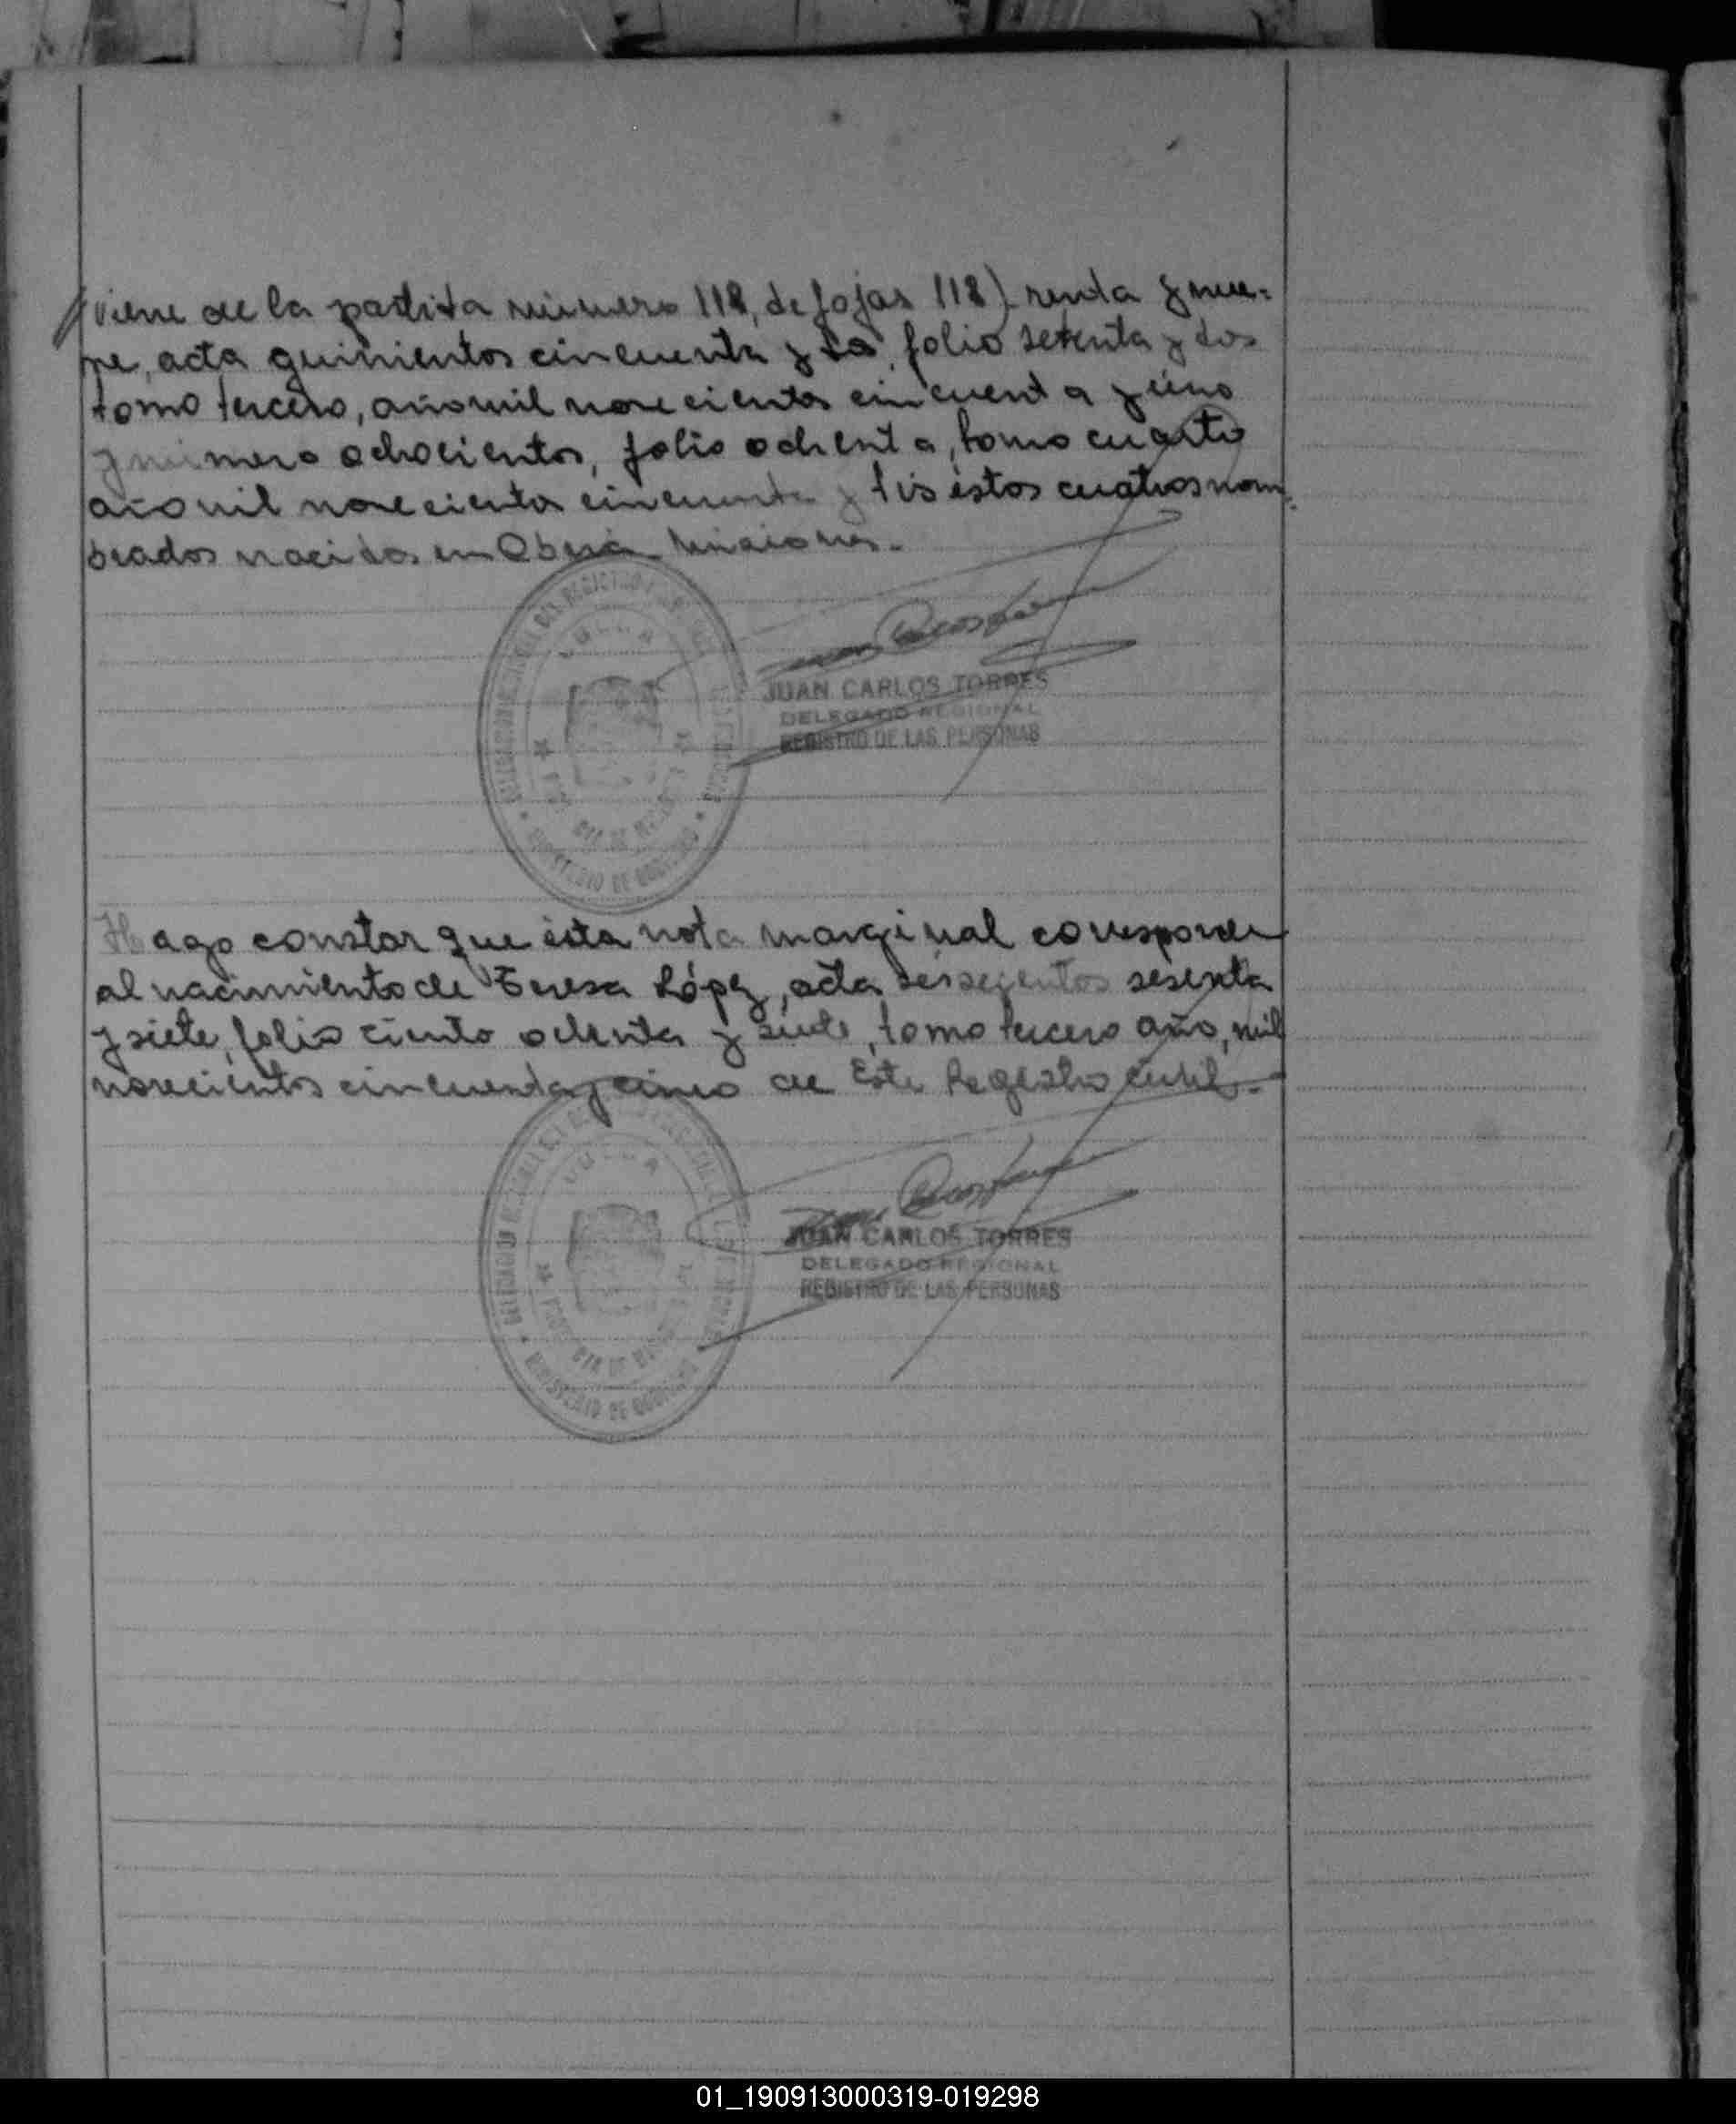 (Viene de la partida número 118, de fojas 118) renta y nue-
ve, acta quinientos cincuenta y folio setenta y dos
tomo tercero, año mil novecientos cincuenta y uno
y número ochocientos, folio ochenta, tomo cuarto
año mil novecientos cincuenta y tres éstos cuatros nom-
brados nacidos en Oberá Misiones.-
JUAN CARLOS TORRES
DELEGADO REGIONAL
REGISTRO DE LAS PERSONAS
MINISTERIO DE GOBIERNO
Hago constar que ésta nota marginal corresponde
al nacimiento de Teresa López, acta seiscientos sesenta
y siete, folio ciento ochenta y siete, tomo tercero año, mil
novecientos cincuenta y cinco de Este Registro Civil.-
JUAN CARLOS TORRES
DELEGADO REGIONAL
REGISTRO DE LAS PERSONAS
MINISTERIO DE GOBIERNO
01_190913000319-019298